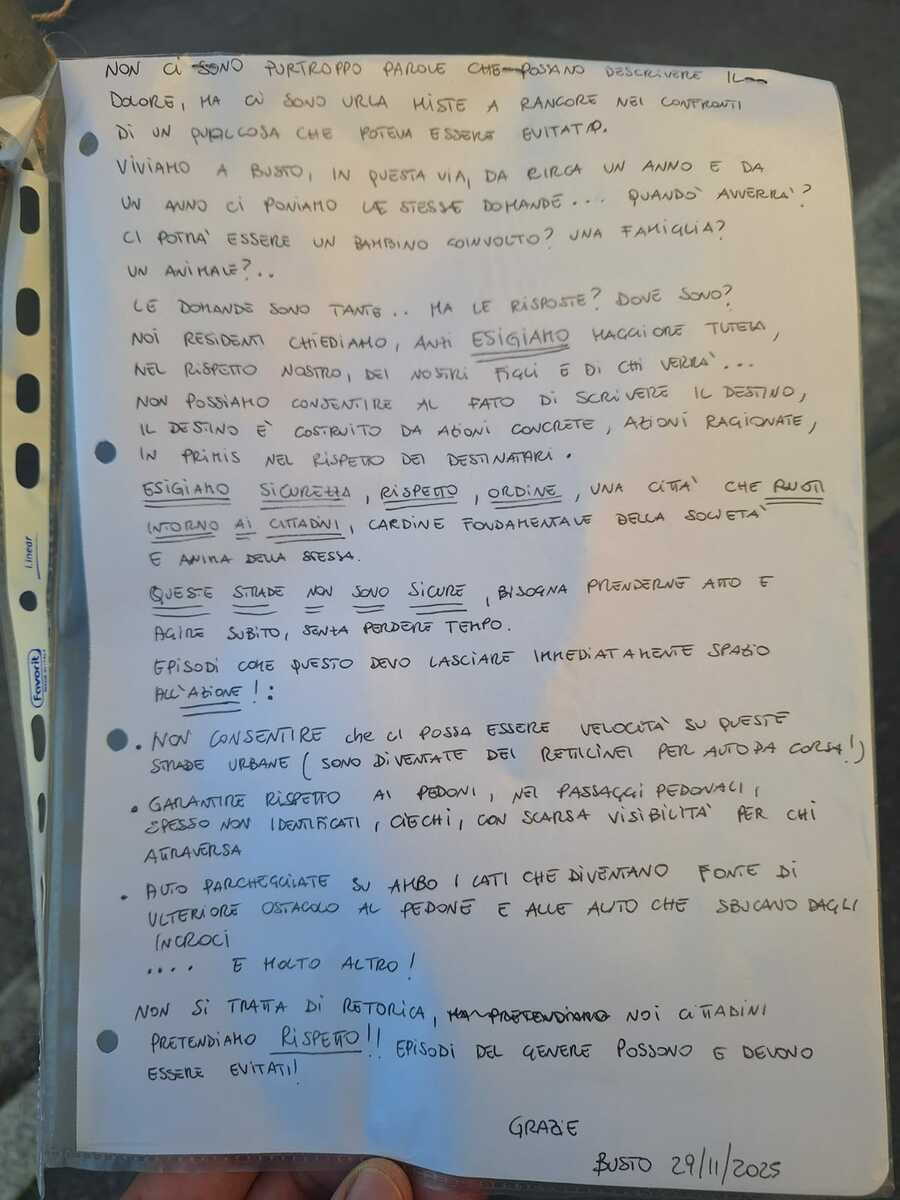 NON CI SONO PURTROPPO PAROLE CHE POSSANO DESCRIVERE IL
DOLORE, MA CI SONO URLA MISTE A RANCORE NEI CONFRONTI
DI UN QUALCOSA CHE POTEVA ESSERE EVITATO.
VIVIAMO A BUSTO, IN QUESTA VIA, DA CIRCA UN ANNO E DA
UN ANNO CI PONIAMO LE STESSE DOMANDE... QUANDO AVVERRA'?
CI POTRA' ESSERE UN BAMBINO COINVOLTO? UNA FAMIGLIA?
UN ANIMALE?..
LE DOMANDE SONO TANTE.. MA LE RISPOSTE? DOVE SONO?
NOI RESIDENTI CHIEDIAMO, ANZI ESIGIAMO MAGGIORE TUTELA,
NEL RISPETTO NOSTRO, DEI NOSTRI FIGLI E DI CHI VERRA'...
NON POSSIAMO CONSENTIRE AL FATO DI SCRIVERE IL DESTINO,
IL DESTINO E' COSTRUITO DA AZIONI CONCRETE, AZIONI RAGIONATE,
IN PRIMIS NEL RISPETTO DEI DESTINATARI.
ESIGIAMO SICUREZZA, RISPETTO, ORDINE, UNA CITTA' CHE RUOTI
INTORNO AI CITTADINI, CARDINE FONDAMENTALE DELLA SOCIETA'
E ANIMA DELLA STESSA.
QUESTE STRADE NON SONO SICURE, BISOGNA PRENDERNE ATTO E
AGIRE SUBITO, SENZA PERDERE TEMPO.
EPISODI COME QUESTO DEVO LASCIARE IMMEDIATAMENTE SPAZIO
ALL'AZIONE!:
• NON CONSENTIRE che CI POSSA ESSERE VELOCITA' SU QUESTE
STRADE URBANE (SONO DIVENTATE DEI RETTILINEI PER AUTO DA CORSA!)
• GARANTIRE RISPETTO AI PEDONI, NEI PASSAGGI PEDONALI,
SPESSO NON IDENTIFICATI, CIECHI, CON SCARSA VISIBILITA' PER CHI
ATTRAVERSA
• AUTO PARCHEGGIATE SU AMBO I LATI CHE DIVENTANO FONTE DI
ULTERIORE OSTACOLO AL PEDONE E ALLE AUTO CHE SBUCANO DAGLI
INCROCI
.... E MOLTO ALTRO!
NON SI TRATTA DI RETORICA, MA PRETENDIAMO NOI CITTADINI
PRETENDIAMO RISPETTO!! EPISODI DEL GENERE POSSONO E DEVONO
ESSERE EVITATI!
GRAZIE
BUSTO 29/11/2025
Linear
Favorit